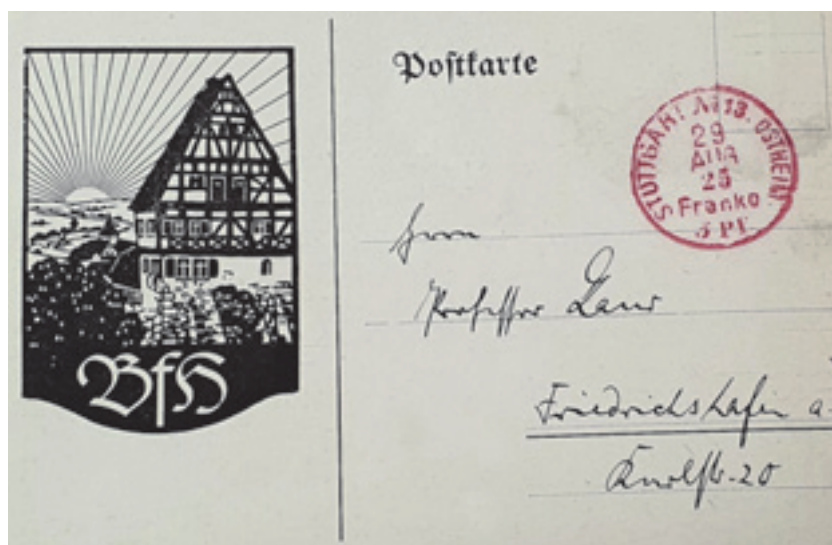 BfH
Postkarte
STUTTGART No 13. OSTHEIM
29
AUG
25
Franko
5 Pf.
Herrn
Professor Lanr
Friedrichshafen a.
Karlstr. 20